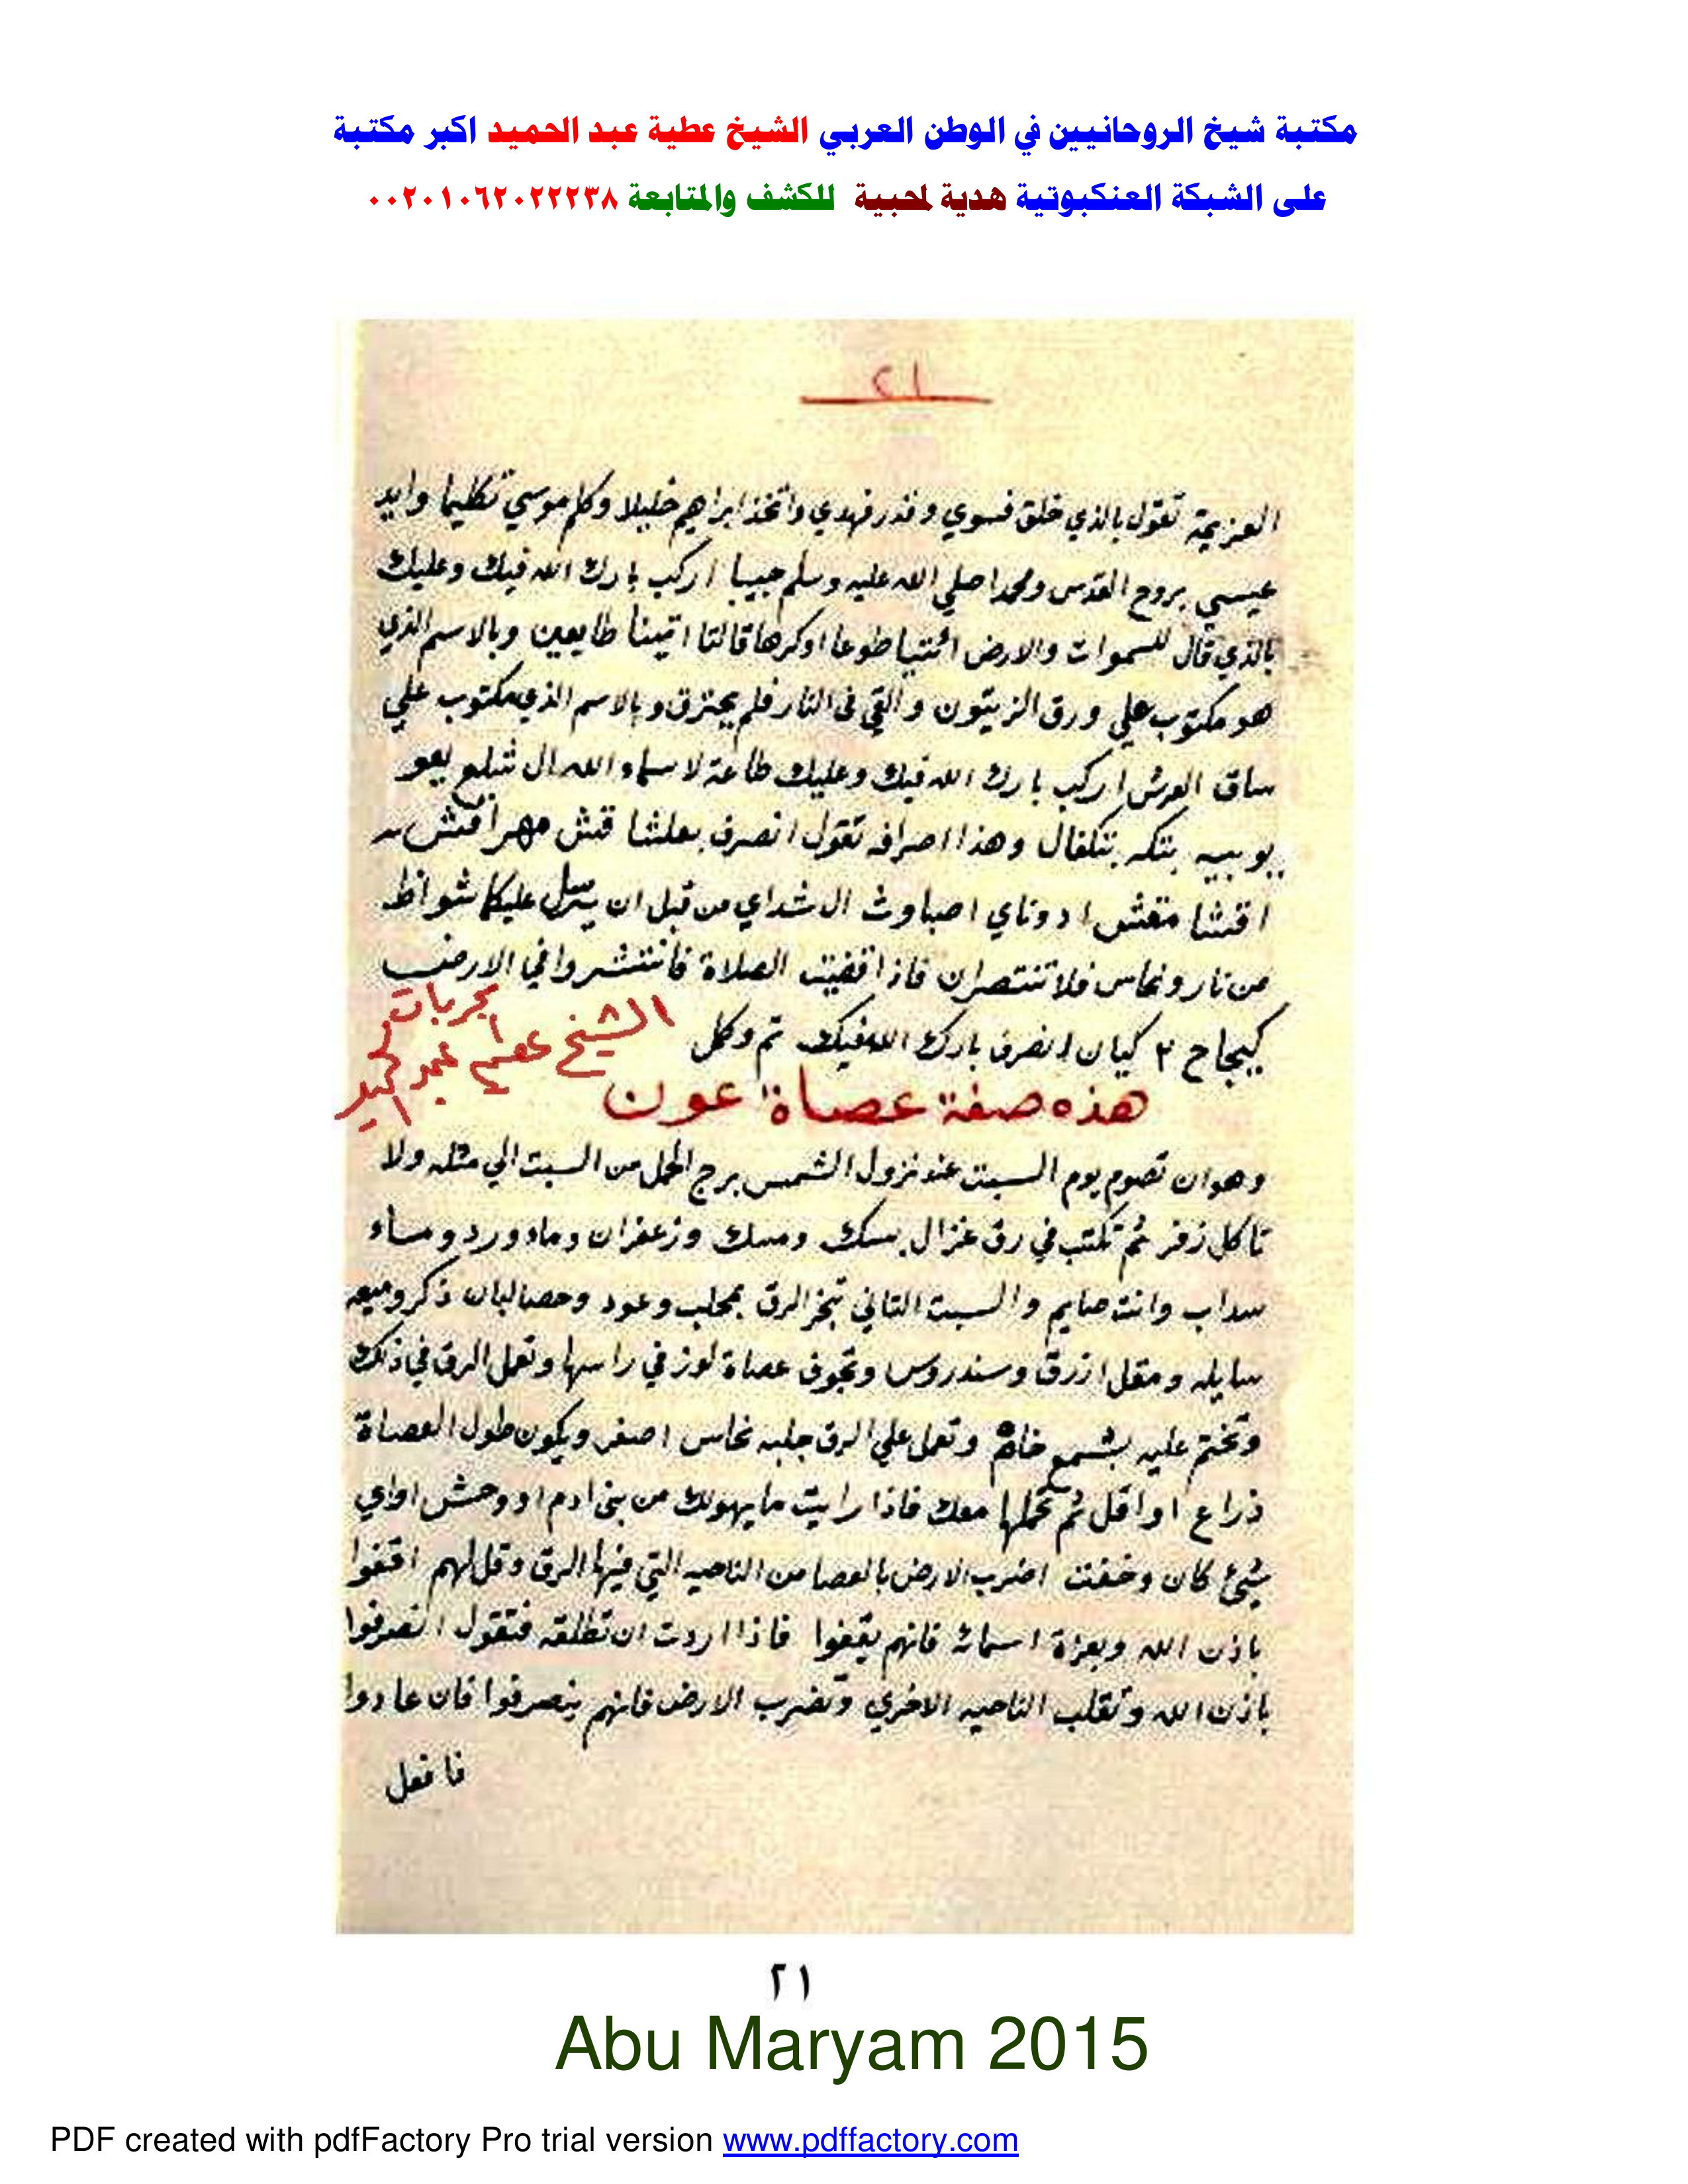 مكتبة شيخ الروحانيين في الوطن العربي الشيخ عطية عبد الحميد اكبر مكتبة
على الشبكة العنكبوتية هدية لمحبية للكشف والمتابعة ٠٠٢٠١٠٦٢٠٢٢٢٣٨
٢١
العزيمة تقول بالذي خلق فسوي وقدر فهدي واتخذ ابراهيم خليلا وكلم موسي تكليما وايد
عيسي بروح القدس ومحمدا صلي الله عليه وسلم حبيبا اركب بارك الله فيك وعليك
بالذي قال للسموات والارض ائتيا طوعا اوكرها قالتا اتينا طايعين وبالاسم الذي
هو مكتوب علي ورق الزيتون والقي في النار فلم يحترق وبالاسم الذي مكتوب علي
ساق العرش اركب بارك الله فيك وعليك طاعة لاسماء الله ال شلع يعو
يوبيه بتكه بتكفال وهذا اصرافه تقول انصرف بعلشا قش مهراقش
اقشا مقش ادوناي اصباوث ال شداي من قبل ان يرسل عليكما شواظ
من نار ونحاس فلا تنتصران فاذا قضيت الصلاة فانتشروا في الارض
كيجاح ٢ كيان انصرف بارك الله فيك تم وكل
مجربات
الشيخ عطيه عبد الحميد
هذه صفة عصاة عون
وهو ان تصوم يوم السبت عند نزول الشمس برج الحمل من السبت الي مثله ولا
تاكل زفر ثم تكتب في رق غزال بسك ومسك وزعفران وماء ورد وماء
سداب وانت صايم والسبت الثاني تبخر الرق بمحلب وعود وحصالبان ذكر وميعه
سايله ومقل ازرق وسندروس وتجوف عصاة لوز في راسها وتعمل الرق في ذلك
وتختم عليه بشمع خام وتعمل علي الرق جلبه نحاس اصفر ويكون طول العصاة
ذراع او اقل ثم تحملها معك فاذا رايت ما يهولك من بني ادم او وحش او اي
شيئ كان وخفت اضرب الارض بالعصا من الناحيه التي فيها الرق وقل لهم اقفوا
باذن الله وبعزة اسمائه فانهم يقفوا فاذا اردت ان تطلقه فتقول انصرفوا
باذن الله وتقلب الناحيه الاخري وتضرب الارض فانهم ينصرفوا فان عادوا
فافعل
٢١
Abu Maryam 2015
PDF created with pdfFactory Pro trial version www.pdffactory.com